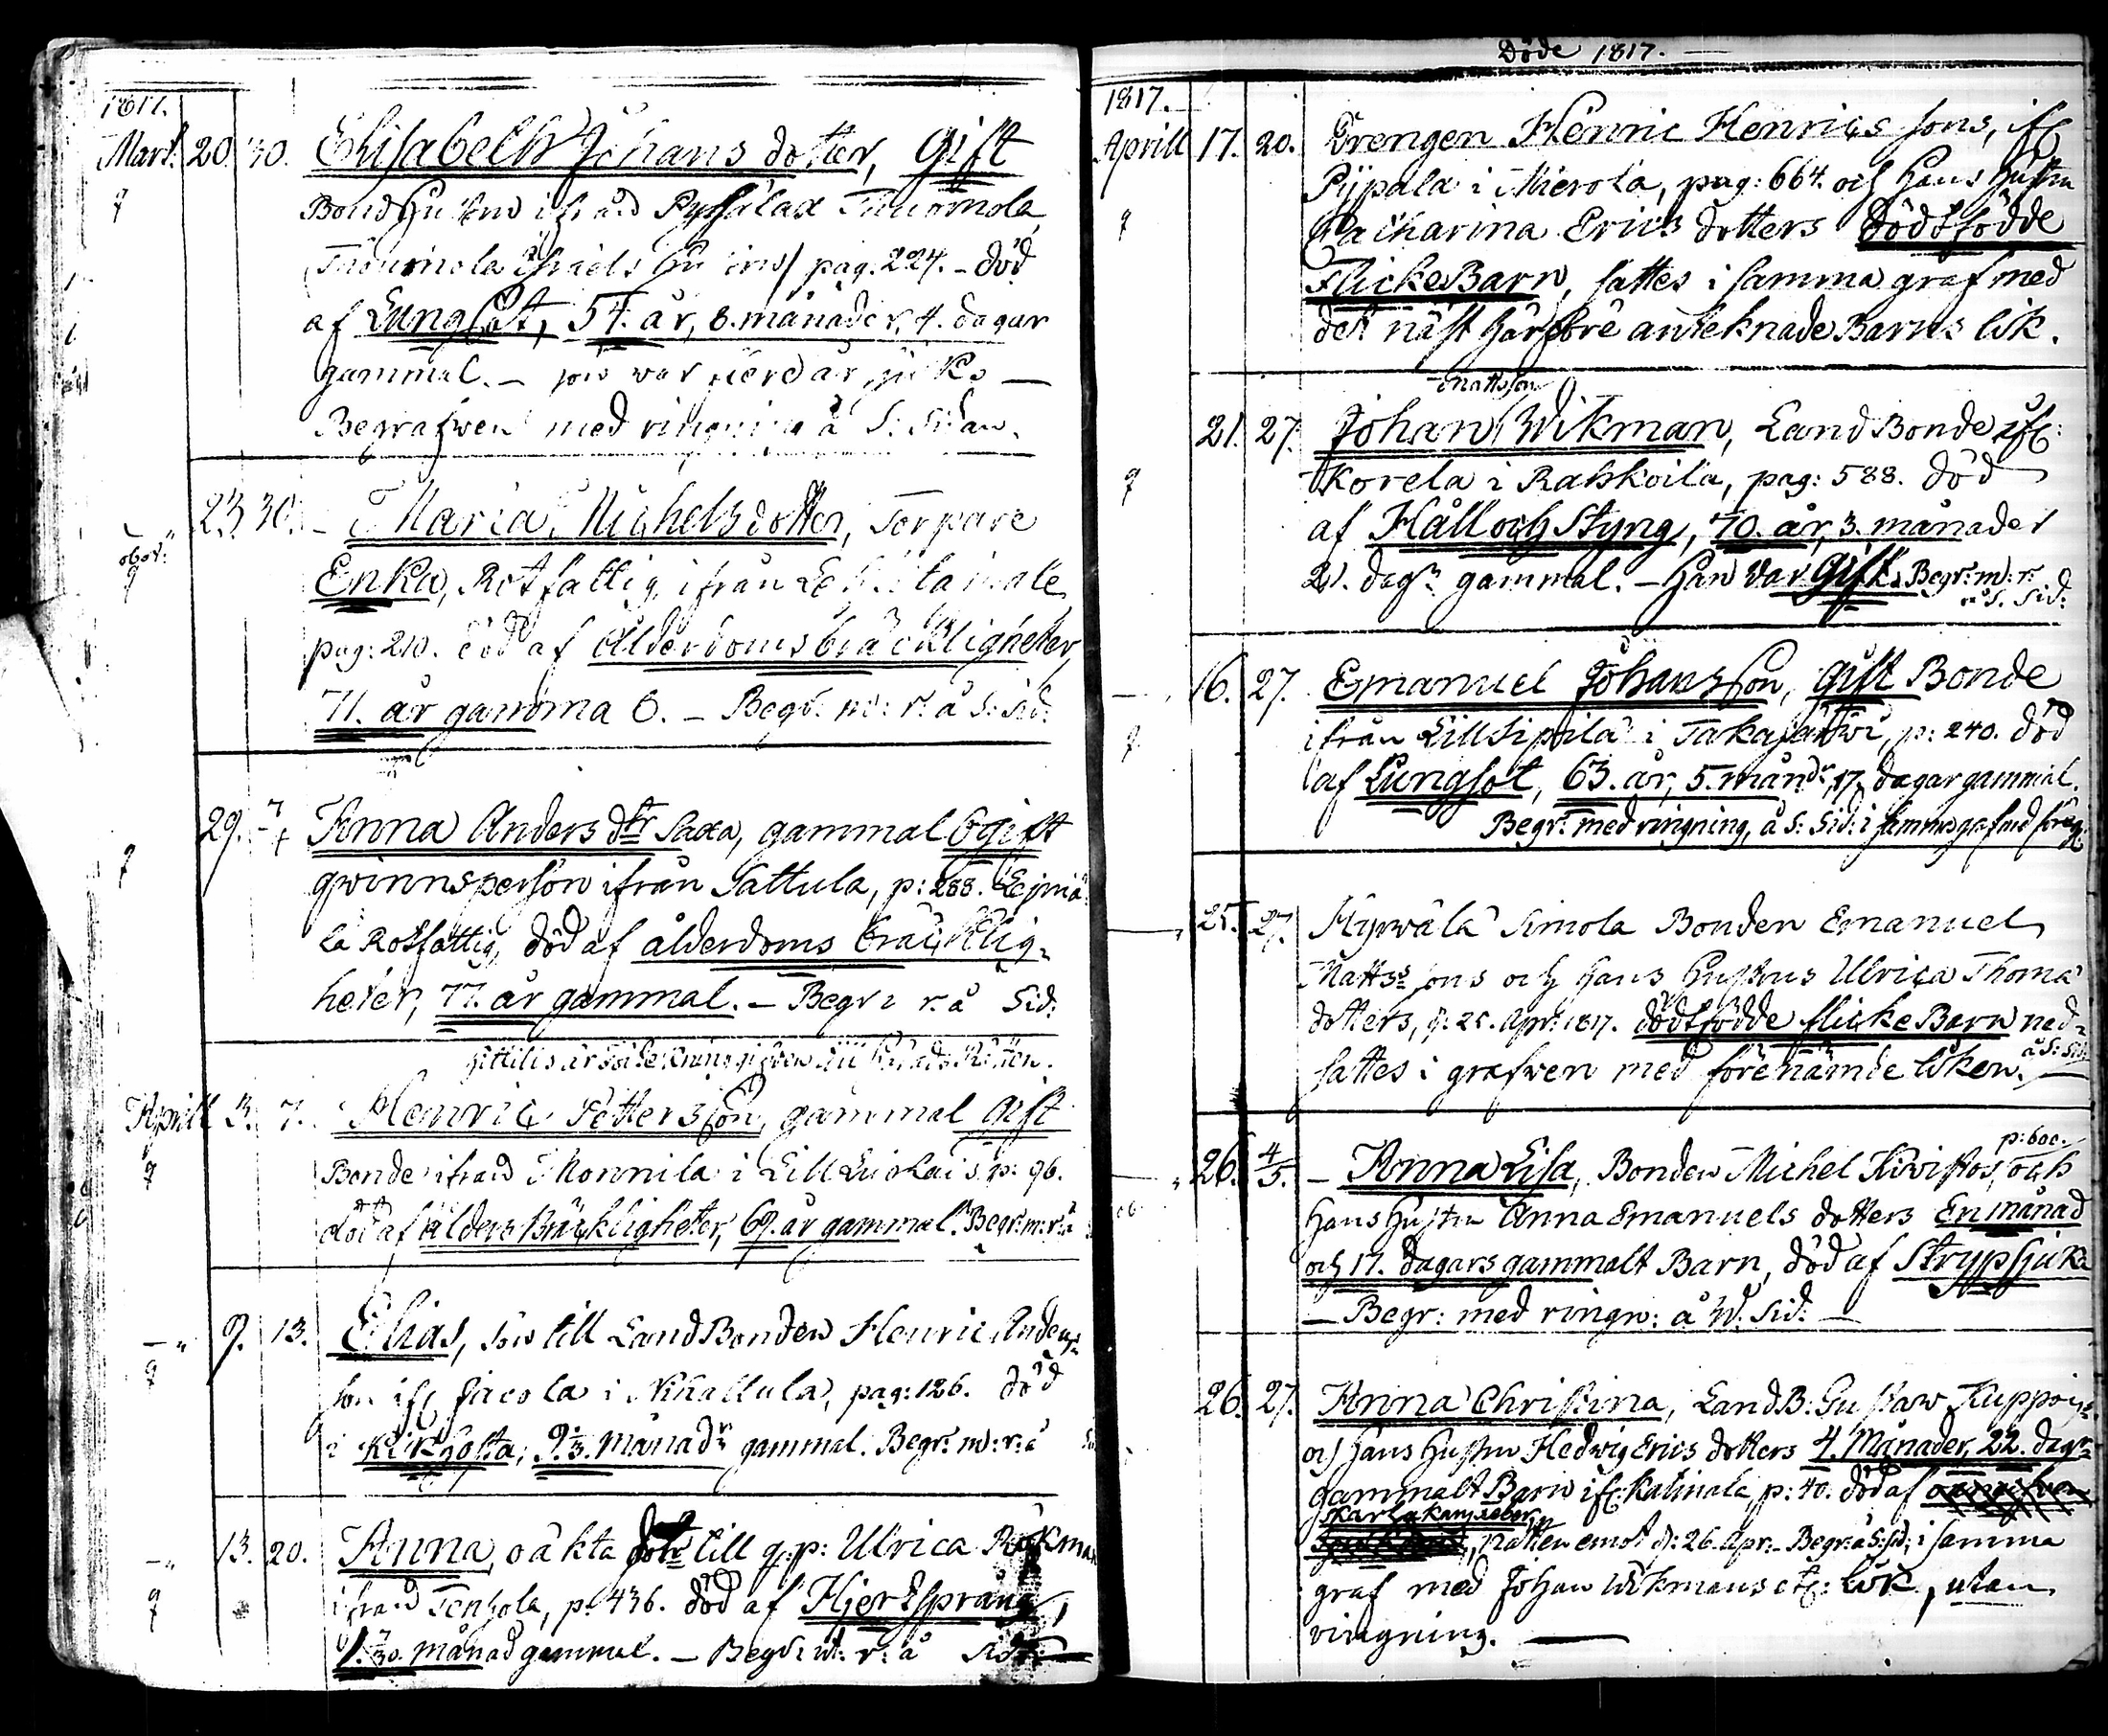 1817.
Mart. 20 30. Elisabeth Johans dotter, Gift
Bond Hustru ifrån Tuomola
Tuomola Israels Hustru pag. 224. – död
af Lungsot, 54. år, 8. månader, 4. dagar
gammal. – som war siuk –
Begrafwen med ringning å S: Sidan.
23. 30. – Maria Michelsdotter, Torpare
obot:
Enka, Rotfattig, ifrån
pag: 210. död af Ålderdoms bräckligheter,
71. år gammal. – Begr. m: r. å S: Sid:
29. 7 Anna Anders dtr Saxa, gammal Ogift
qwinnsperson ifrån Sattula, p: 288.
la Rotfattig, död af ålderdoms bräcklig-
heter, 77. år gammal. – Begr: r. å Sid:
Aprill 3. 7. Henric Pettersson, gammal Gift
Bonde ifrån Monnila i Lill p. 96.
död af ålders Bräckligheter, 69. år gammal. Begr: m: r: å
9. 13. Elias, Son till LandBonden Henric Anders-
son ifr Jacola i Nihattula, pag: 126. död
i Kikhosta, 9 1/3. månadr gammal. Begr: m: r: å
13. 20. Anna, oäkta dotr till q:p: Ulrica Rökman
ifrån Tenhola, p. 436. död af Hjertsprång,
månad gammal. – Begr: m: r: å Sid:
Döde 1817.
1817.
Aprill 17. 20. Drengen Henric Henrics sons, ifr
Pijpala i Mierola, pag: 664. och hans Hustru
Catharina Erics dotters dödfödde
FlickeBarn, sattes i samma graf med
det näst härföre anteknade Barns lik.
Mattsson
21. 27. Johan Wikman, LandBonde ifr:
Korela i Rahkoila, pag: 588. död
af Håll och Styng, 70. år, 3. månader
21. dagr gammal. – Han var Gift. Begr: m: r:
å S. Sid:
16. 27. Emanuel Johansson, gift Bonde
ifrån LillSipilä i Takajärfwi, p: 240. död
af Lungsot, 63. år, 5. måndr, 17. dagar gammal.
Begr: med ringning, å S: Sid: i samma graf med föreg:
25. 27. Hyrwälä Simola Bonden Emanuel
Matts sons och hans Hustrus Ulrica Thomæ
dotters, d: 25. Apr: 1817. dödfödde flicke Barn ned-
sattes i grafwen med förenämde liken. å S: Sid:
p: 600.
26. 4/5. – Anna Lisa, Bonden Michel Kivistös, och
hans Hustru Anna Emanuels dotters En månad
och 17. dagars gammalt Barn, död af Strypsjuka
– Begr: med ringn: å W. Sid: –
26. 27. Anna Christina, LandB: Gustaw
och hans Hustru Hedwig Erics dotters 4. Månader, 22. dagr
gammalt Barn ifr: Katinala, p: 40. död af
Skarlakansfeber,
natten emot d: 26. Apr. Begr: å S: Sid, i samma
graf med Johan Wikmans etc: Lik, utan
ringning. –